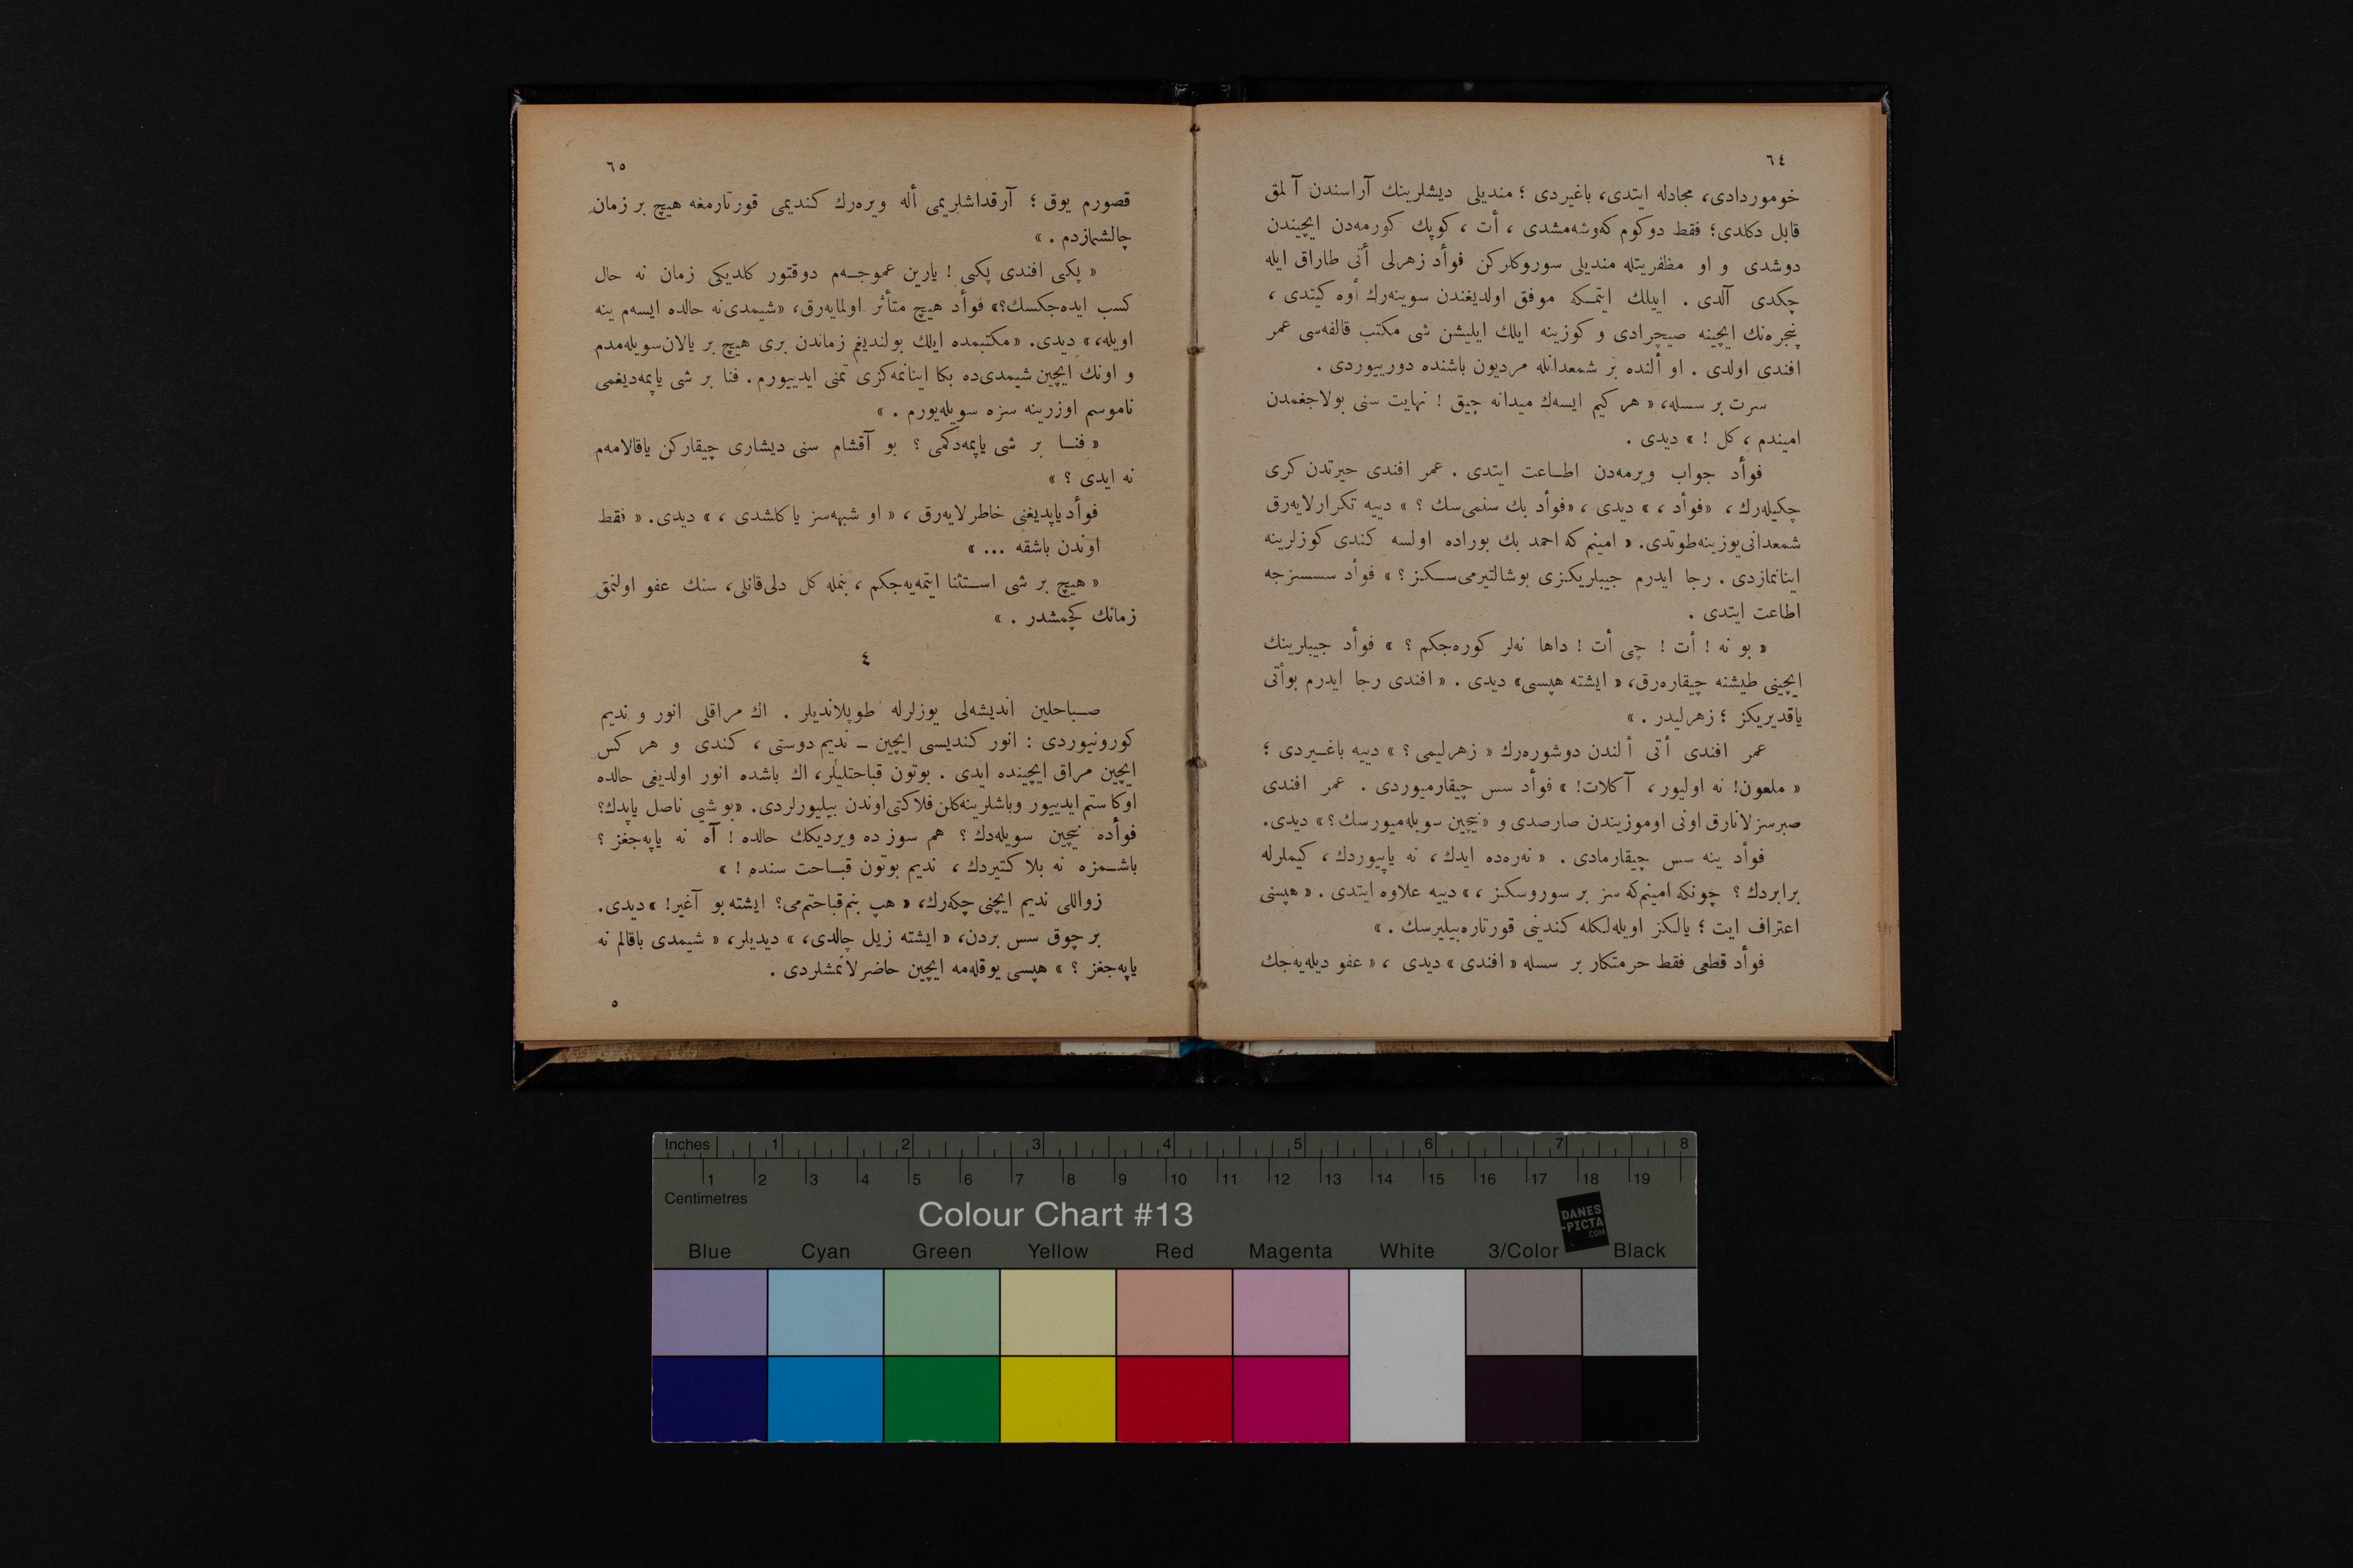 ٦٤
خوموردادی، مجادله ایتدی، باغیردی ؛ مندیلی دیشلرینك آراسندن آلمق
قابل دكلدی؛ فقط دوكوم كه‌وشه‌مشدی ، أت ، كوپك كورمه‌دن ایچیندن
دوشدی و او مظفریتله مندیلی سوروكلركن فوأد زهرلی أتی طاراق ایله
چكدی آلدی . اییلك ایتمكه موفق اولدیغندن سوینه‌رك أوه كیتدی ،
پنجره‌نك ایچینه صیچرادی و كوزینه ایلك ایلیشن شی مكتب قالفه‌سی عمر
افندی اولدی . او ألنده بر شمعدانله مردیون باشنده دورییوردی .
سرت بر سسله، « هر كیم ایسه‌ك میدانه چیق ! نهایت سنی بولاجغمدن
امیندم ، كل ! » دیدی .
فوأد جواب ویرمه‌دن اطاعت ایتدی . عمر افندی حیرتدن كری
چكیله‌رك، «فوأد ، » دیدی ، «فوأد بك سنمی‌سك ؟ » دییه تكرارلایه‌رق
شمعدانی یوزینه طوتدی. « امینم كه احمد بك بوراده اولسه كندی كوزلرینه
اینانمازدی . رجا ایدرم جیبلریكزی بوشالتیرمی‌سكز ؟ » فوأد سسسزجه
اطاعت ایتدی .
« بو نه ! أت ! چی أت ! داها نه‌لر كوره‌جكم ؟ » فوأد جیبلرینك
ایچینی طیشنه چیقاره‌رق، « ایشته هپسی» دیدی . « افندی رجا ایدرم بو أتی
یاقدیریكز ؛ زهرلیدر . »
عمر افندی أتی ألندن دوشوره‌رك « زهرلیمی ؟ » دییه باغیردی ؛
« ملعون! نه اولیور ، آكلات! » فوأد سس چیقارمیوردی . عمر افندی
صبرسزلانارق اونی اوموزیندن صارصدی و « نیچین سویله‌میورسك ؟ » دیدی.
فوأد ینه سس چیقارمادی . « نه‌ره‌ده ایدك ، نه یاپیوردك ، كیملرله
برابردك ؟ چونكه امینم كه سز بر سوروسكز ، » دییه علاوه ایتدی . « هپسنی
اعتراف ایت ؛ یالكز اویله‌لكله كندینی قورتاره‌بیلیرسك . »
فوأد قطعی فقط حرمتكار بر سسله « افندی » دیدی ، « عفو دیله‌یه‌جك
٦٥
قصورم یوق ؛ آرقداشلریمی أله ویره‌رك كندیمی قورتارمغه هیچ بر زمان
چالشمازدم . »
« پكی افندی پكی ! یارین عموجه‌م دوقتور كلدیكی زمان نه حال
كسب ایده‌جكسك؟» فوأد هیچ متأثر اولمایه‌رق، «شیمدی نه حالده ایسه‌م ینه
اویله، » دیدی. « مكتبمده ایلك بولندیغم زماندن بری هیچ بر یالان سویله‌مدم
و اونك ایچین شیمدی‌ده بكا اینانمه‌كزی تمنی ایدییورم . فنا بر شی یاپمه‌دیغمی
ناموسم اوزرینه سزه سویله‌یورم . »
« فنا بر شی یاپمه‌دكمی ؟ بو آقشام سنی دیشاری چیقاركن یاقالامه‌م
نه ایدی ؟ »
فوأد یاپدیغنی خاطرلایه‌رق ، « او شبهه‌سز یاكلشدی ، » دیدی. « فقط
اوندن باشقه ... »
« هیچ بر شی استثنا ایتمه‌یه‌جكم ، بنمله كل دلی‌قانلی، سنك عفو اولنمق
زمانك كچمشدر . »
٤
صباحلین اندیشه‌لی یوزلرله طوپلاندیلر . اك مراقلی انور و ندیم
كورونیوردی : انور كندیسی ایچین ــ ندیم دوستی ، كندی و هر كس
ایچین مراق ایچینده ایدی . بوتون قباحتلیلر، اك باشده انور اولدیغی حالده
اوكا ستم ایدییور و باشلرینه كلن فلاكتی اوندن بیلیورلردی. «بو شیی ناصل یاپدك؟
فوأده نیچین سویله‌دك ؟ هم سوز ده ویردیكك حالده ! آه نه یاپه‌جغز ؟
باشمزه نه بلا كتیردك ، ندیم بوتون قباحت سنده ! »
زواللی ندیم ایچنی چكه‌رك، « هپ بنم قباحتم‌می؟ ایشته بو آغیر! » دیدی.
بر چوق سس بردن، « ایشته زیل چالدی، » دیدیلر، « شیمدی باقالم نه
یاپه‌جغز ؟ » هپسی یوقله‌مه ایچین حاضرلانمشلردی .
٥
Inches 1 2 3 4 5 6 7 8
1 2 3 4 5 6 7 8 9 10 11 12 13 14 15 16 17 18 19
Centimetres
Colour Chart #13
DANES
-PICTA
.COM
Blue Cyan Green Yellow Red Magenta White 3/Color Black